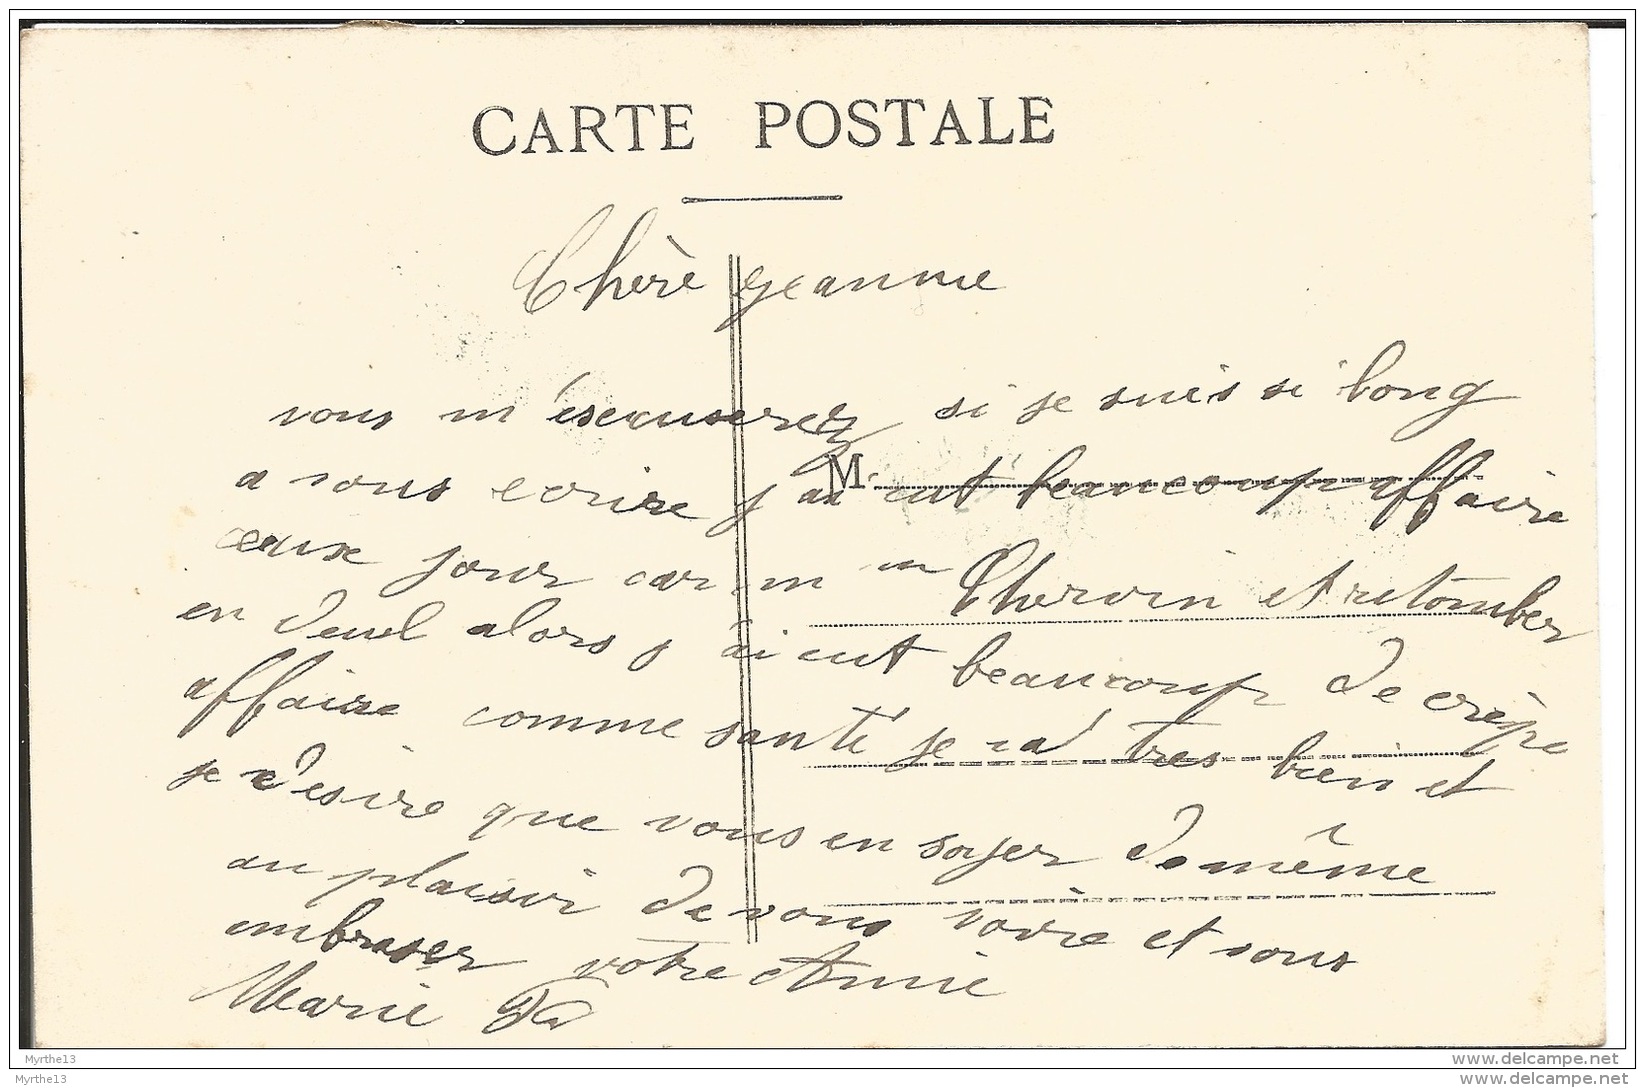 CARTE POSTALE
Chère jeanne
vous m'éscuserez si je suis si long
a vous ecrire j'ai eut beaucoup affaire
M.
ceaux jour car m Chervin et retomber
en deuil alors j'ai eut beaucoup de crèpe
affaire comme santé je va tres bien et
je desire que vous en soyer de même
au plaisir de vous voire et vous
embraser votre Amie
Marie
Myrthe13
www.delcampe.net
Myrthe13
www.delcampe.net